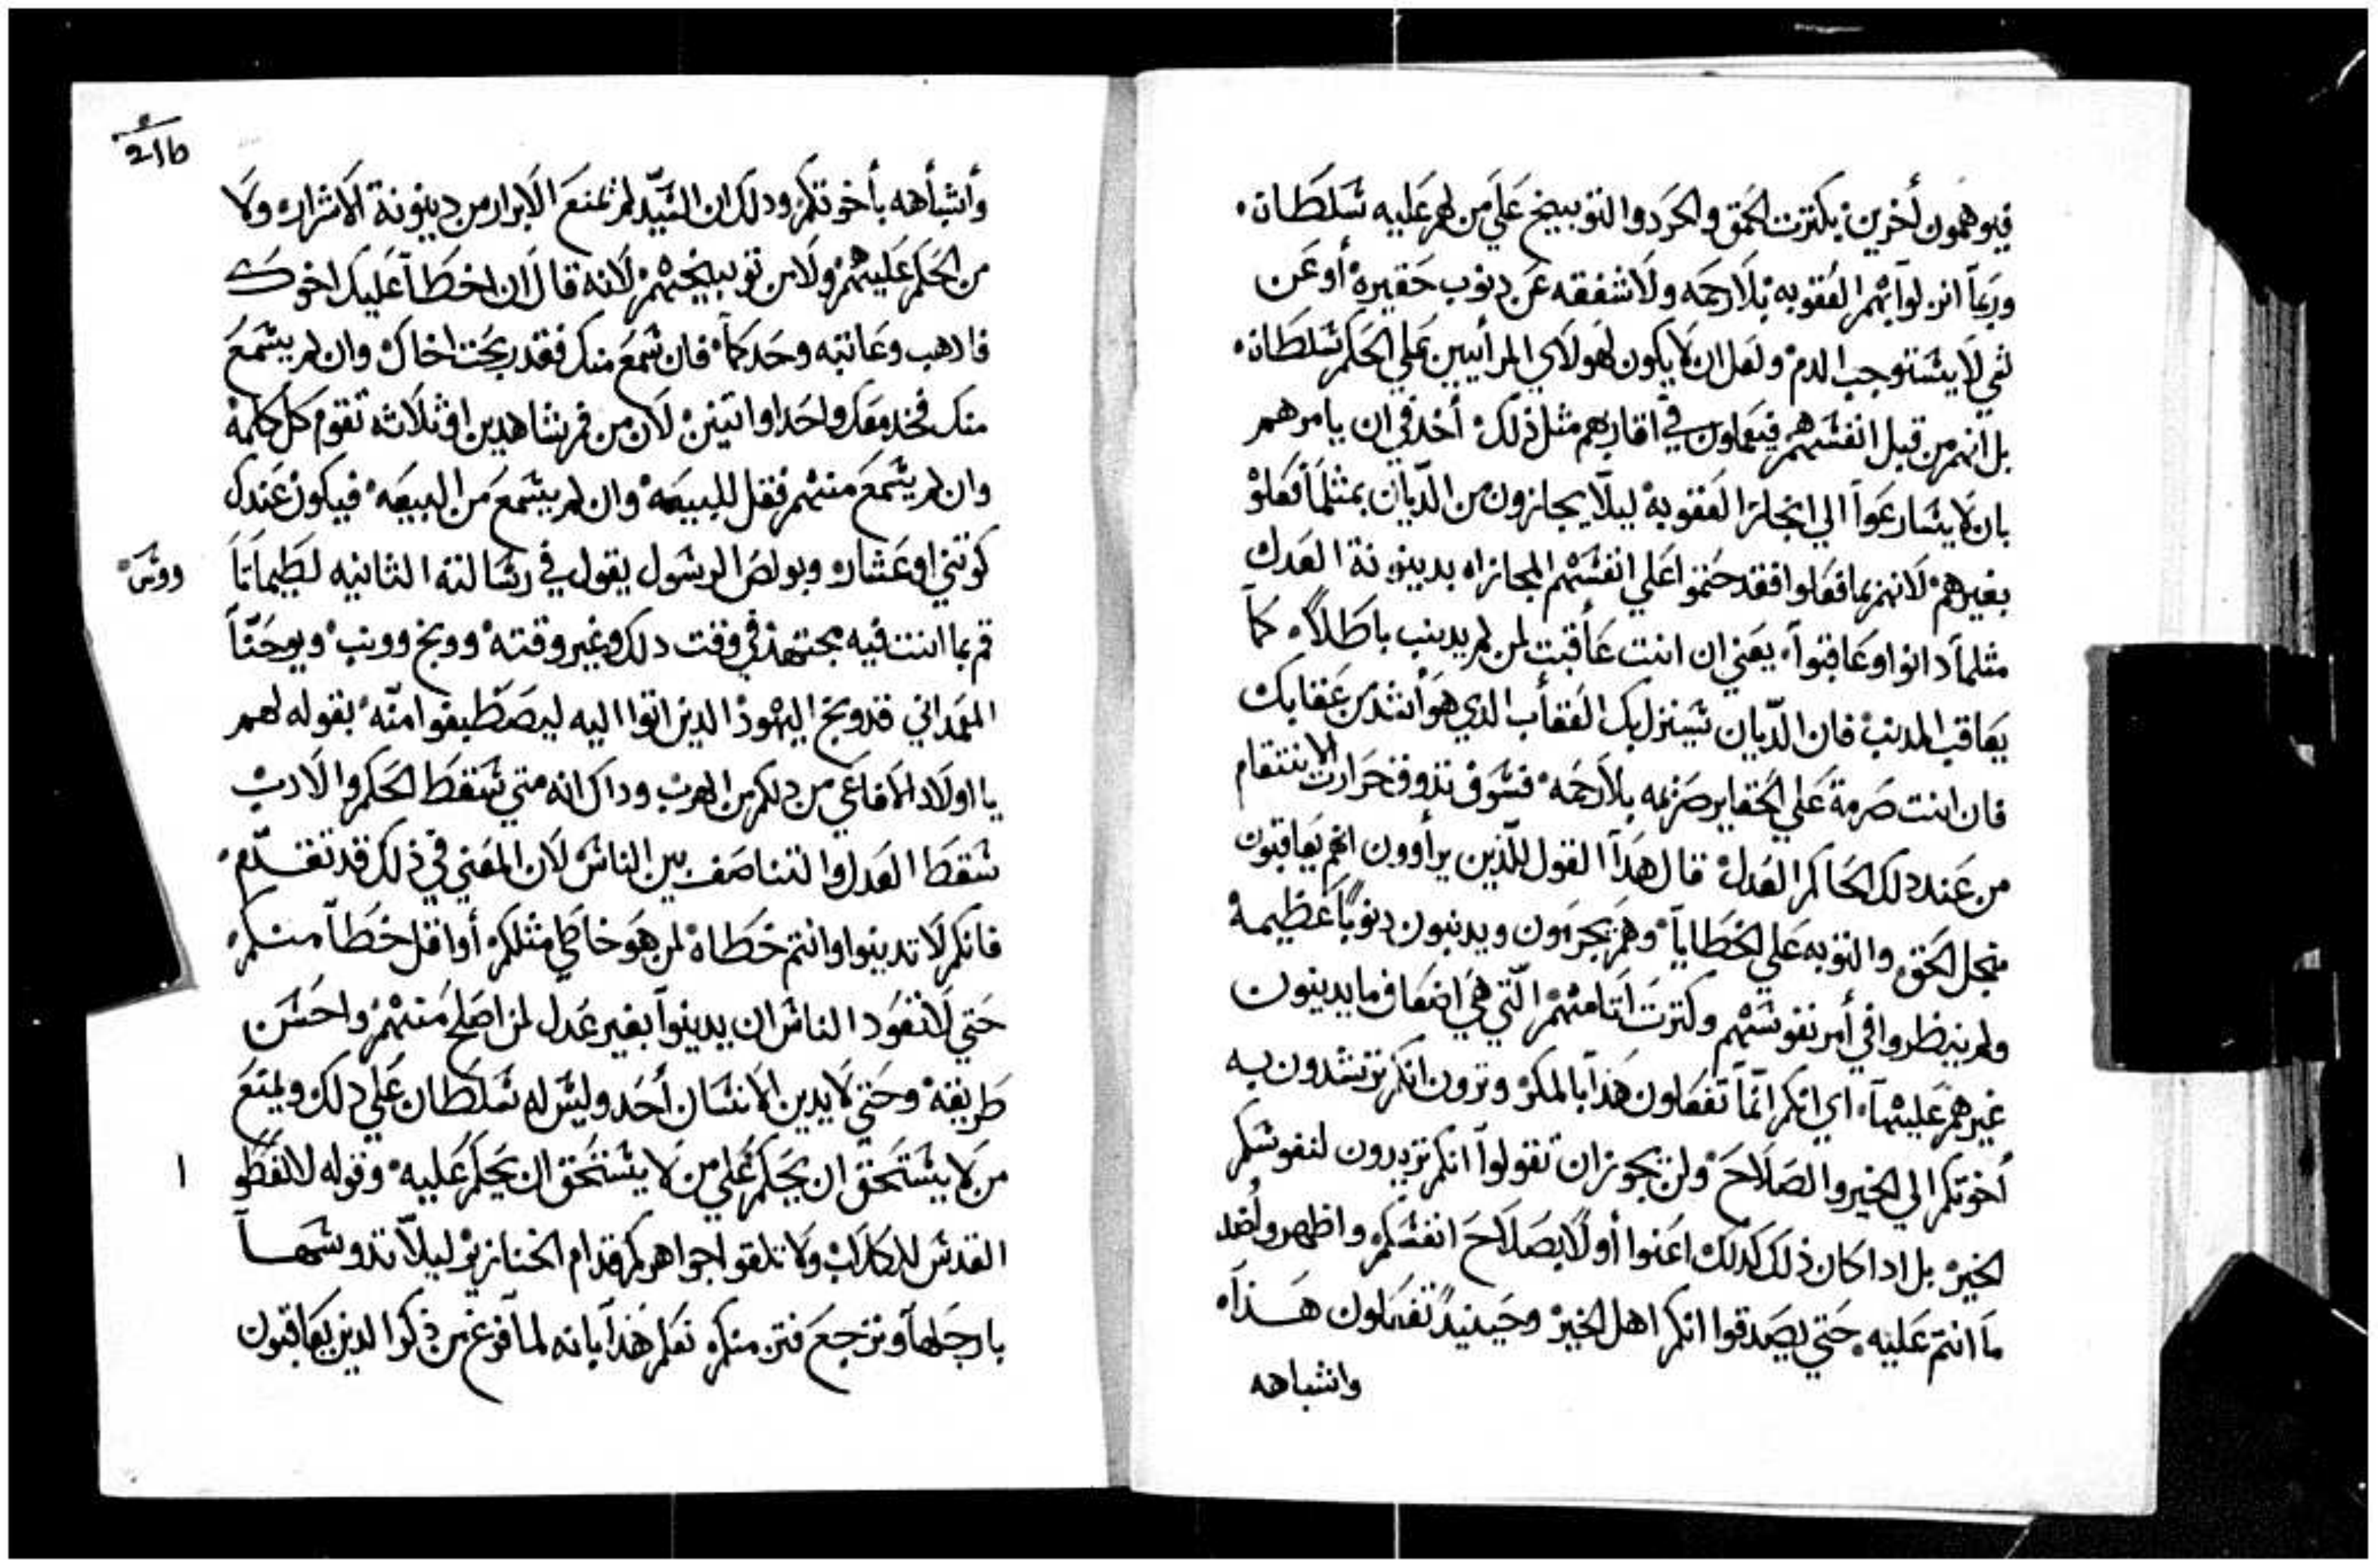 فيوهمون أخرين بكترت الحمق والحرد والتوبيخ علي من لهم عليه سلطان
وربما انزلوا بهم العقوبه بلا رحمه ولا شفقه عن دنوب حقيره أو عن
شي لا يستوجب الدم ولعل ان لا يكون لهولاي المرأيين علي الحكم سلطان
بل انهم من قبل انفسهم فيعاون في اقاربهم مثل ذلك أخذ في ان يامرهم
بان لا يسارعوا الي انجاز العقوبة ليلا يجازون من الديان بمثلما فعلو
بغيرهم لانهم بما فعلوا فقد حتمو اعلي انفسهم المجازاه بدينونة العدل
مثلما دانوا وعاقبوا يعني ان انت عاقبت لمن لم يدنب باطلاً كما
يعاقب المدنب فان الديان سينزل بك العقاب الدي هو اشد من عقابك
فان انت صرمة علي الحقاير صرمه بلا رحمه فسوف تدوق حرارت الانتقام
من عند دلك الحاكم العدل قال هدا القول للذين يرأوون انهم يعاقبون
من اجل الحق والتوبه علي الخطايا وهم يجرمون ويدنبون دنوباً عظيمة
ولم ينظروا في أمر نفوسهم وكترت اتامهم التي هي اضعاف ما يدينون
غيرهم عليها اي انكم انما تفعلون هذا بالمكر وترون انكم ترشدون به
أخوتكم الي الخير والصلاح ولن يجوز ان تقولوا انكم تريدون لنفوسكم
الخير بل ادا كان ذلك كدلك اعنوا أولا بصلاح انفسكم واظهروا ضد
ما انتم عليه حتي يصدقوا انكم اهل الخير وحينيدً تفعلون هذا
واشباهه
21b
وأشبأهه بأخوتكم ودلك ان السيد لم يمنع الابرار من دينونة الاشرار ولا
من الحكم عليهم ولا من توبيخهم لانه قال ان اخطا عليك اخوك
فادهب وعاتبه وحدكما فان سمع منك فقد ربحت اخاك وان لم يسمع
منك فخد معك واحدا او اتنين لان من فم شاهدين او ثلاثه تقوم كل كلمة
وان لم يسمع منهم فقل للبيعه وان لم يسمع من البيعه فيكون عندك
كوتني او عشار وبولص الرسول يقول في رسالته الثانيه لطيماتا
وس
قم بما انت فيه مجتهد في وقت دلك وغير وقته ووبخ وونب ويوحنا
المعمداني قد وبخ اليهود الدين اتوا اليه ليصطبغوا منه بقوله لهم
يا اولاد الافاعي من دلكم من الهرب وداك انه متي سقط الحكم والادب
سقط العدل والتناصف بين الناس لان المعني في ذلك قد تقدم
فانكم لا تدينوا وانتم خطاة لمن هو خاطي مثلكم أو اقل خطا منكم
حتي لا تتعود الناس ان يدينوا بغير عدل لمن اصلح منهم واحسن
طريقة وحتي لا يدين الانسان أحد وليس له سلطان علي دلك ويمتع
من لا يستحق ان يحكم علي من لا يستحق ان يحكم عليه وقوله لا تعطو
ا
القدس للكلاب ولا تلقوا جواهركم قدام الخنازير ليلا تدوسها
بارجلها وترجع فتن منكم نعلم هذا بانه لما فرغ من ذكر الدين يعاقبون